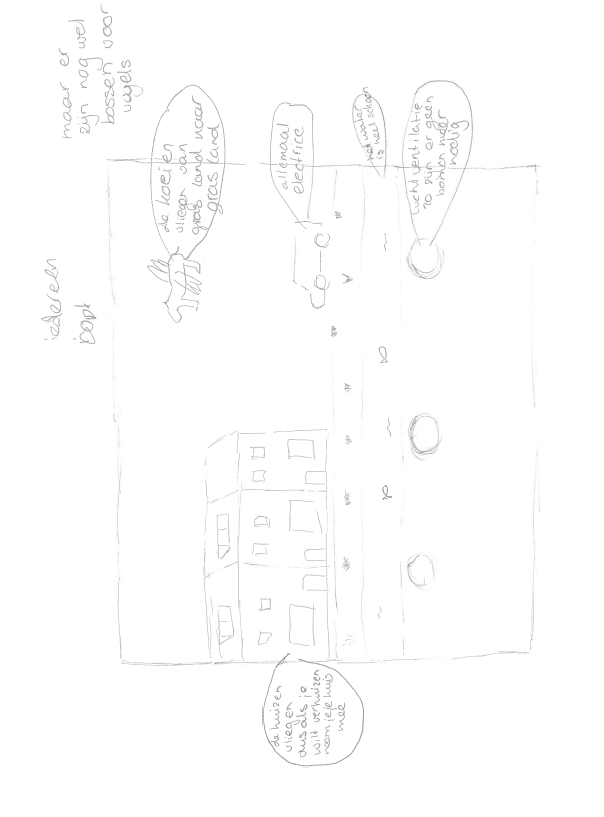 maar er
zijn nog wel
bossen voor
vogels
iedereen
loopt
de koeien
vliegen van
gras land naar
gras land
allemaal
electrice
het water
is heel schoon
luchtventilatie
zo zijn er geen
bomen meer
nodig
de huizen
vliegen
dus als je
wilt verhuizen
neem je je huis
mee